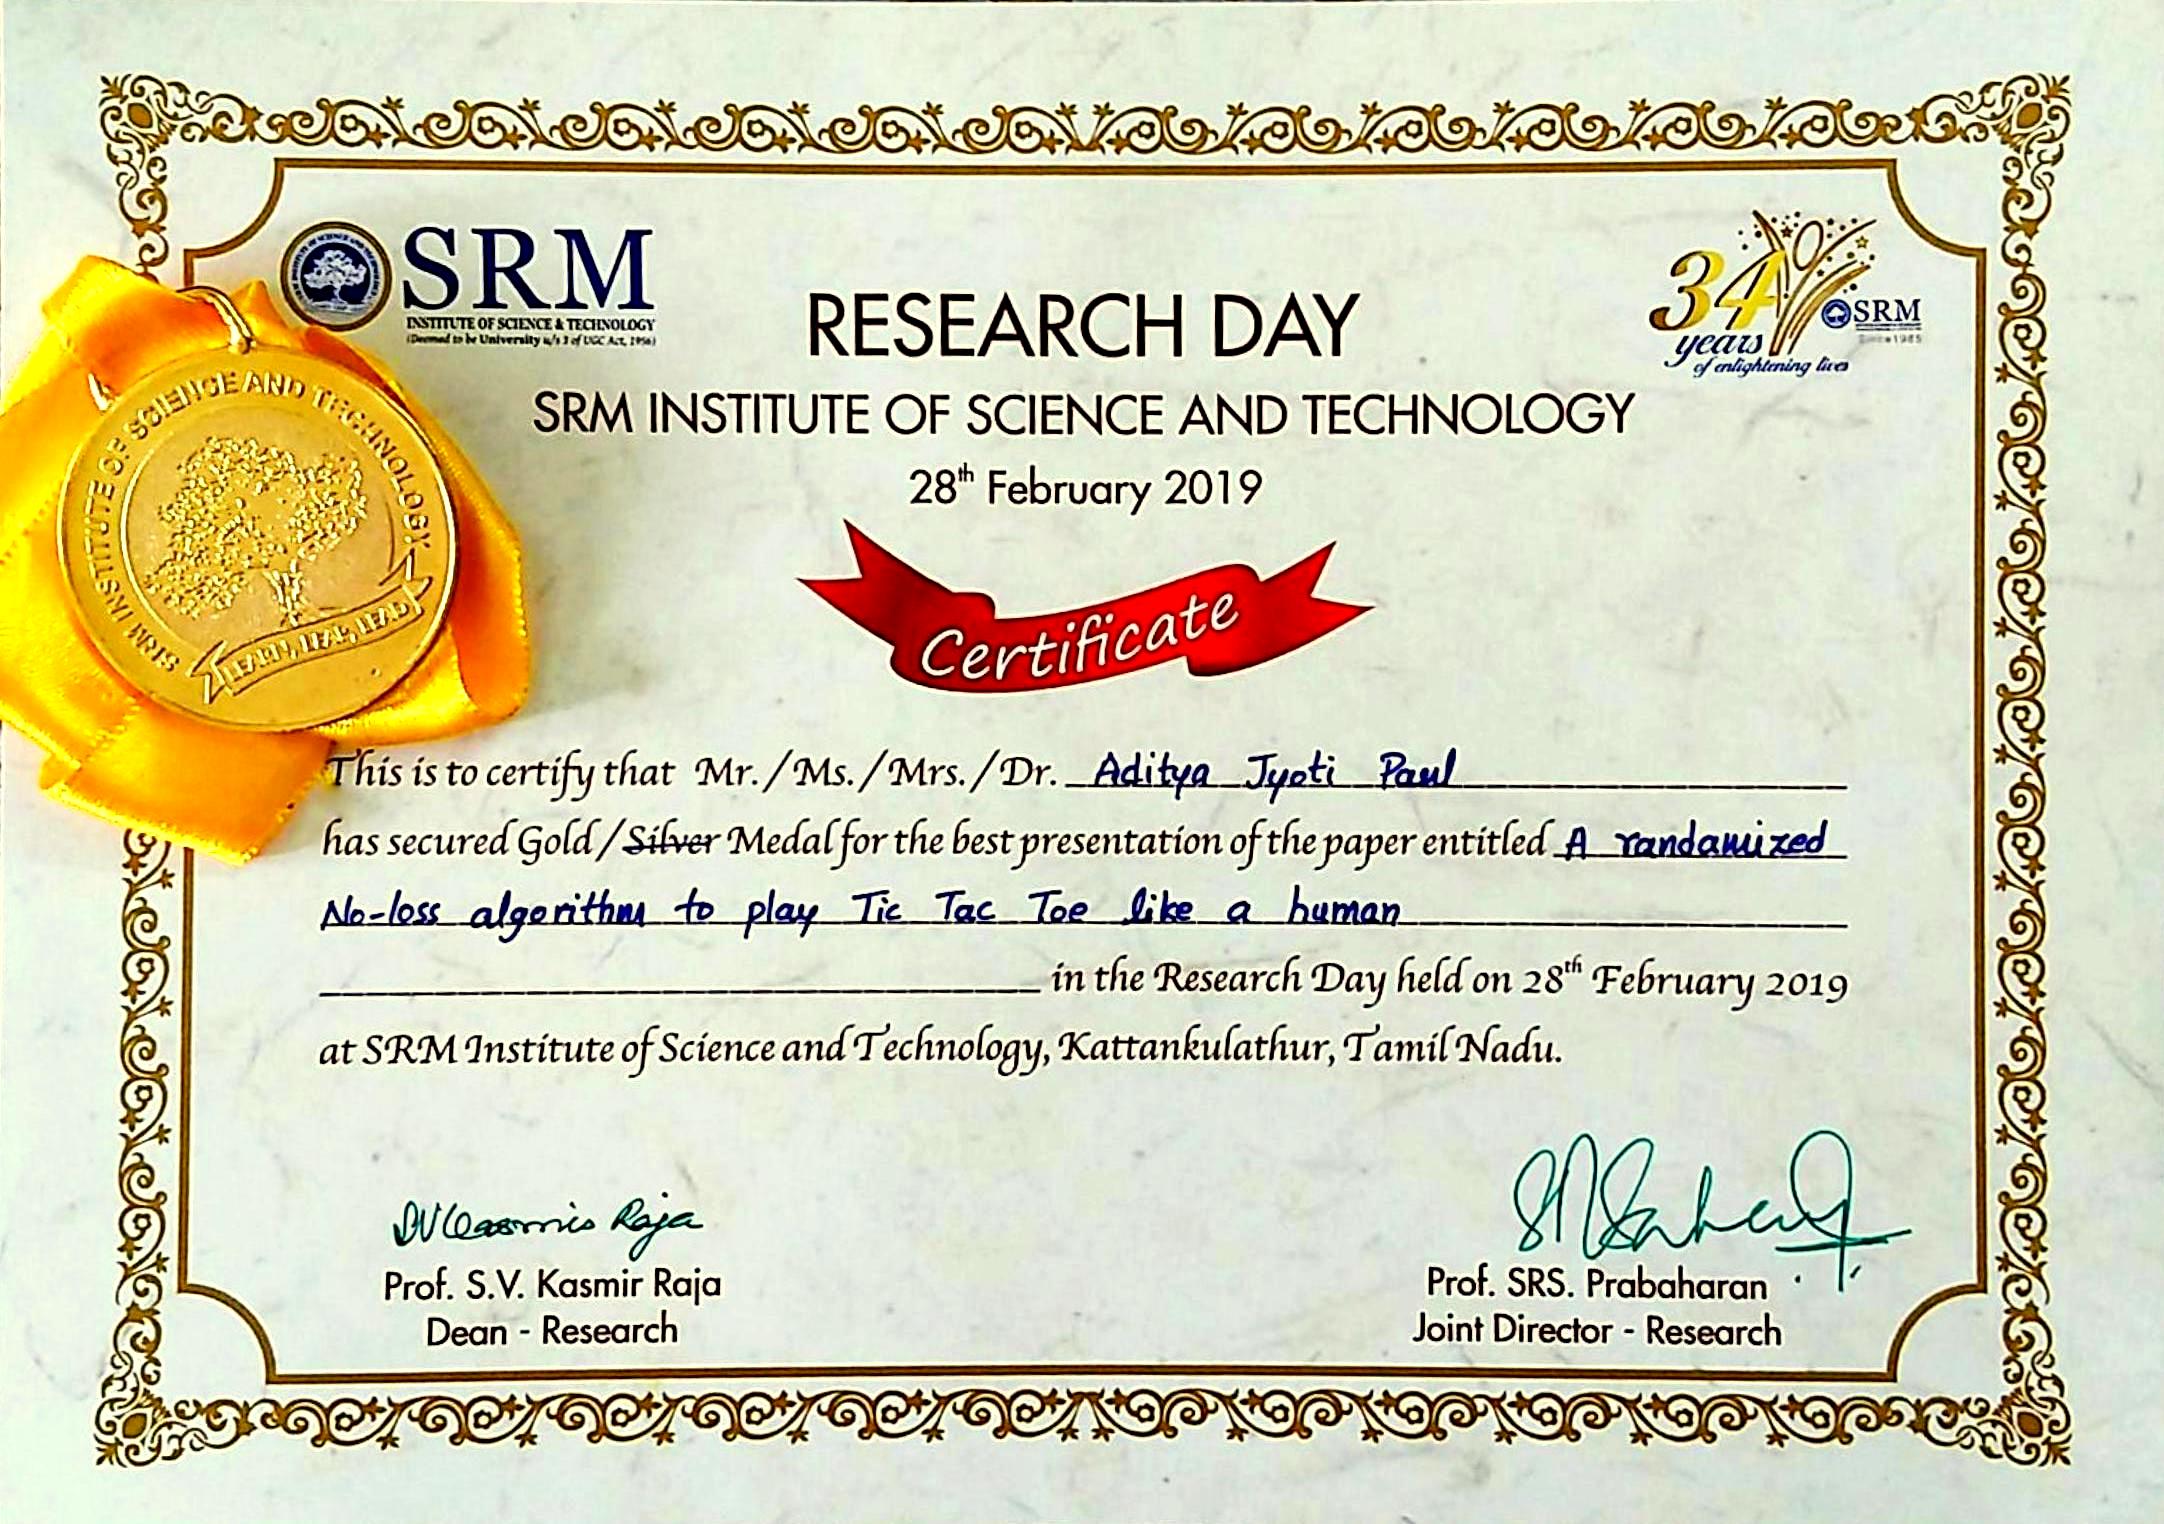 SRM
INSTITUTE OF SCIENCE & TECHNOLOGY
(Deemed to be University u/s 3 of UGC Act, 1956)
34
years
of enlightening lives
SRM
Since 1985
RESEARCH DAY
SRM INSTITUTE OF SCIENCE AND TECHNOLOGY
28th February 2019
Certificate
SRM INSTITUTE OF SCIENCE AND TECHNOLOGY
LEARN, LEAP, LEAD
This is to certify that Mr./Ms./Mrs./Dr. Aditya Jyoti Paul
has secured Gold/Silver Medal for the best presentation of the paper entitled A randamized
No-loss algorithm to play Tic Tac Toe like a human
in the Research Day held on 28th February 2019
at SRM Institute of Science and Technology, Kattankulathur, Tamil Nadu.
Prof. S.V. Kasmir Raja
Dean - Research
Prof. SRS. Prabaharan
Joint Director - Research